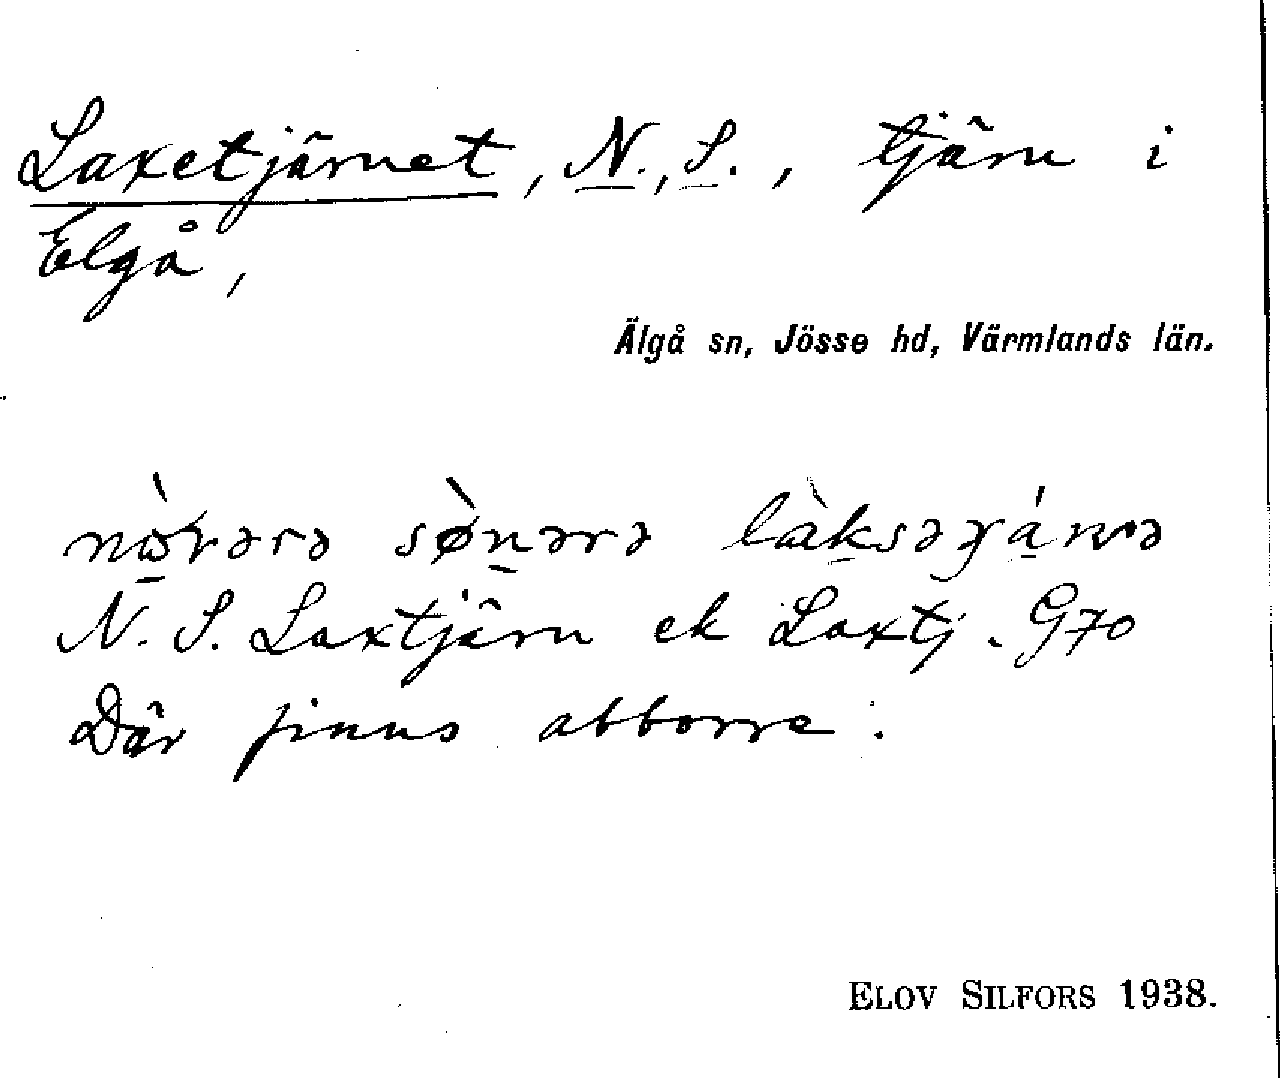 Laxetjärnet, N., S., tjärn i
Elgå,
Älgå sn, Jösse hd, Värmlands län.
sø̀nərə
N. S. Laxtjärn ek Laxtj. G70
Där finns abborre.
ELOV SILFORS 1938.